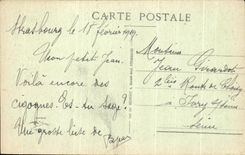 CARTE POSTALE
Strasbourg le 18 février 1919.
Mon petit Jean.
Voilà encore des
cigognes. Es-tu sage?
Une grosse bise de
Papa
Monsieur
Jean Girardot
2 bis Route de Choisy
à Ivry s/Seine
Seine